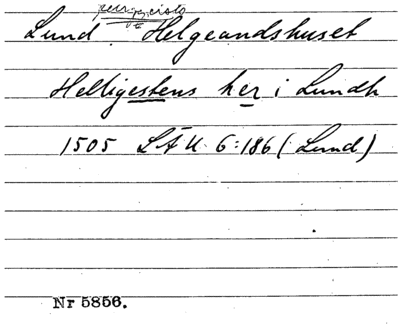 Lund. Helgeandshuset
Helligestens her i Lundh
1505 LÄU 6:186 (Lund)
Nr 5856.